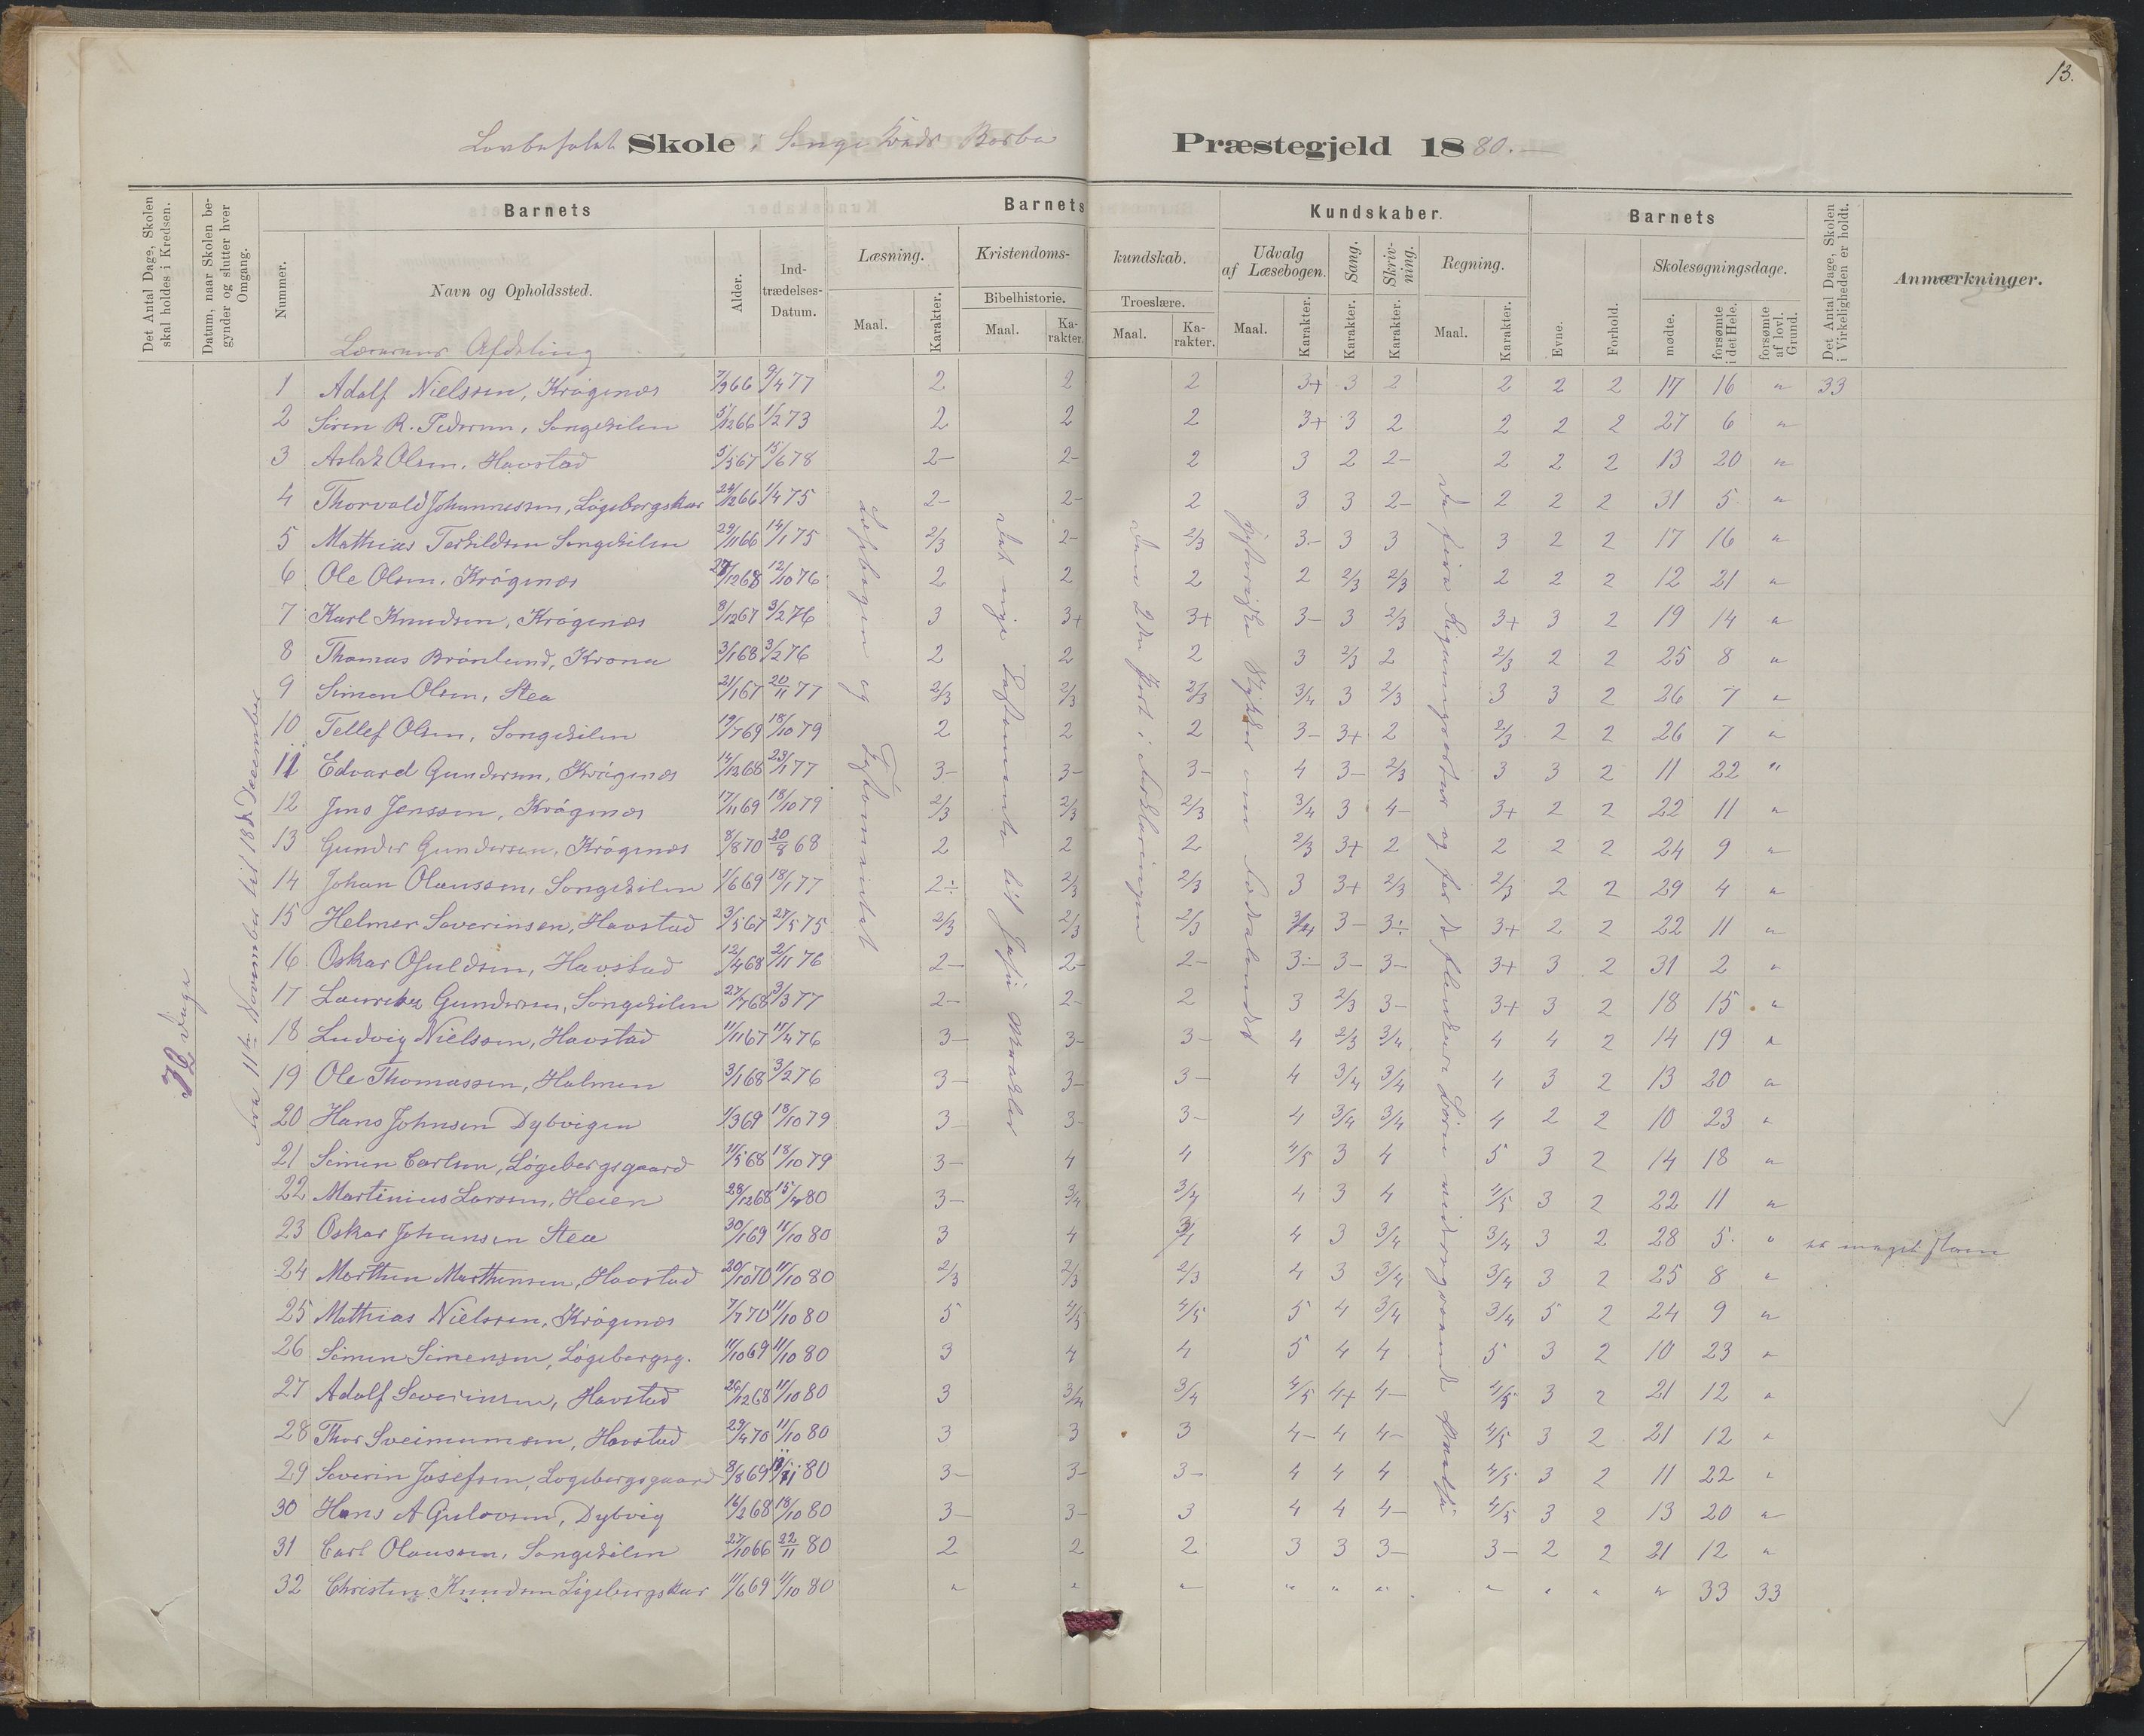 13.
Skole i Songe Kreds Barbo Præstegjeld 1880.
Det Antal Dage, Skolen skal holdes i Kredsen.
Datum, naar Skolen begynder og slutter hver Omgang.
Barnets
Barnets Kundskaber.
Barnets
Det Antal Dage, Skolen i Virkeligheden er holdt.
Anmærkninger.
Nummer.
Navn og Opholdssted.
Alder.
Indtrædelses-Datum.
Læsning.
Maal.
Karakter.
Kristendomskundskab.
Bibelhistorie.
Maal.
Karakter.
Troeslære.
Maal.
Karakter.
Udvalg af Læsebogen.
Maal.
Karakter.
Sang.
Karakter.
Skrivning.
Karakter.
Regning.
Maal.
Karakter.
Evne.
Forhold.
Skolesøgningsdage.
mødte.
forsømte i det Hele.
forsømte af lovl. Grund.
Afdeling
Dage
fra 11te November til 18de December
Læsebogen og Testamentet
Det nye Testamente til Jesu Mirakler
Den 2den Part i Forklaringen
1 Adolf Nielssen, Krøgenæs 7/9 66 9/4 77 2 2 2 3+ 3 2 2 2 2 17 16 " 33
2 Søren R. Pedersen, Songekilen 5/12 66 1/2 73 2 2 2 3+ 3 2 2 2 2 27 6 "
3 Aslak Olsen, Havstad 5/5 67 15/6 78 2- 2- 2 3 2 2- 2 2 2 13 20 "
4 Thorvald Johannessen, Løgebergskar 24/12 66 1/4 75 2- 2- 2 3 3 2- 2 2 2 31 5 "
5 Mathias Terkildsen Songekilen 29/11 66 14/1 75 2/3 2- 2/3 3- 3 3 3 2 2 17 16 "
6 Ole Olsen, Krøgenæs 27/12 68 12/10 76 2 2 2 2 2/3 2/3 2 2 2 12 21 "
7 Karl Knudsen, Krøgenæs 8/12 67 3/2 76 3 3+ 3+ 3- 3 2/3 3+ 3 2 19 14 "
8 Thomas Brønlund, Krona 3/1 68 3/2 76 2 2 2 3 2/3 2 2/3 2 2 25 8 "
9 Simon Olsen, Stea 21/1 67 20/11 77 2/3 2/3 2/3 3/4 3 2/3 3 3 2 26 7 "
10 Tellef Olsen, Songekilen 19/7 69 18/10 79 2 2 2 3- 3+ 2 2/3 2 2 26 7 "
11 Edvard Gundersen, Krøgenæs 14/12 68 23/1 77 3- 3- 3- 4 3- 2/3 3 3 2 11 22 "
12 Jens Jenssen, Krøgenæs 17/11 69 18/10 79 2/3 2/3 2/3 3/4 3 4- 3+ 2 2 22 11 "
13 Gunder Gundersen, Krøgenæs 8/8 70 20/8 68 2 2 2 2/3 3+ 2 2 2 2 24 9 "
14 Johan Olaussen, Songekilen 1/6 69 18/1 77 2÷ 2/3 2/3 3 3+ 2/3 2/3 2 2 29 4 "
15 Helmer Severinsen, Havstad 3/5 67 27/5 75 2/3 2/3 2/3 3/4 3- 3÷ 3+ 2 2 22 11 "
16 Oskar Osuldsen, Havstad 12/4 68 2/11 76 2- 2- 2- 3- 3- 3- 3+ 3 2 31 2 "
17 Lauritz Gundersen, Songekilen 27/7 68 3/3 77 2- 2- 2 3 2/3 3- 3+ 3 2 18 15 "
18 Ludvig Nielssen, Havstad 11/11 67 11/4 76 3- 3- 3- 4 2/3 3/4 4 4 2 14 19 "
19 Ole Thomassen, Holmen 3/1 68 3/2 76 3- 3- 3- 4 3/4 3/4 4 3 2 13 20 "
20 Hans Johnsen Dybvigen 1/3 69 18/10 79 3- 3- 3- 4 3/4 3/4 4 2 2 10 23 "
21 Simon Carlsen, Løgebergsgaard 11/5 68 18/10 79 3- 4 4 4/5 3 4 5 3 2 14 18 "
22 Martinius Larssen, Heien 28/12 68 15/4 80 3- 3/4 3/4 4 3 4 4/5 3 2 22 11 "
23 Oskar Johansen Stea 30/1 69 11/10 80 3 4 3/4 4 3 3/4 3/4 3 2 28 5 "
24 Morthen Morthensen, Havstad 20/10 70 11/10 80 2/3 2/3 2/3 4 3 3/4 3/4 3 2 25 8 "
25 Mathias Nielssen, Krøgenæs 7/7 70 11/10 80 5 4/5 4/5 5 4 3/4 3/4 5 2 24 9 "
26 Simon Simensen, Løgebergsg. 11/10 69 11/10 80 3 4 4 5 4 4 5 3 2 10 23 "
27 Adolf Severinsen, Havstad 26/12 68 11/10 80 3 3/4 3/4 4/5 4+ 4- 4/5 3 2 21 12 "
28 Thor Sveinumsen, Havstad 29/4 70 11/10 80 3 3 3 4- 4 4- 4/5 3 2 21 12 "
29 Severin Josefsen, Løgebergsgaard 8/8 69 80 3- 3- 3- 4 4 4 4/5 3 2 11 22 "
30 Hans A Gulovsen, Dybvig 16/2 68 18/10 80 3- 3- 3 4 4 4- 4/5 3 2 13 20 "
31 Carl Olaussen, Songekilen 27/10 66 22/11 80 2 2 2 3 3 3- 3- 2 2 21 12 "
32 Christen Knudsen Løgebergskar 11/6 69 11/10 80 " " " " " " " " " " 33 33